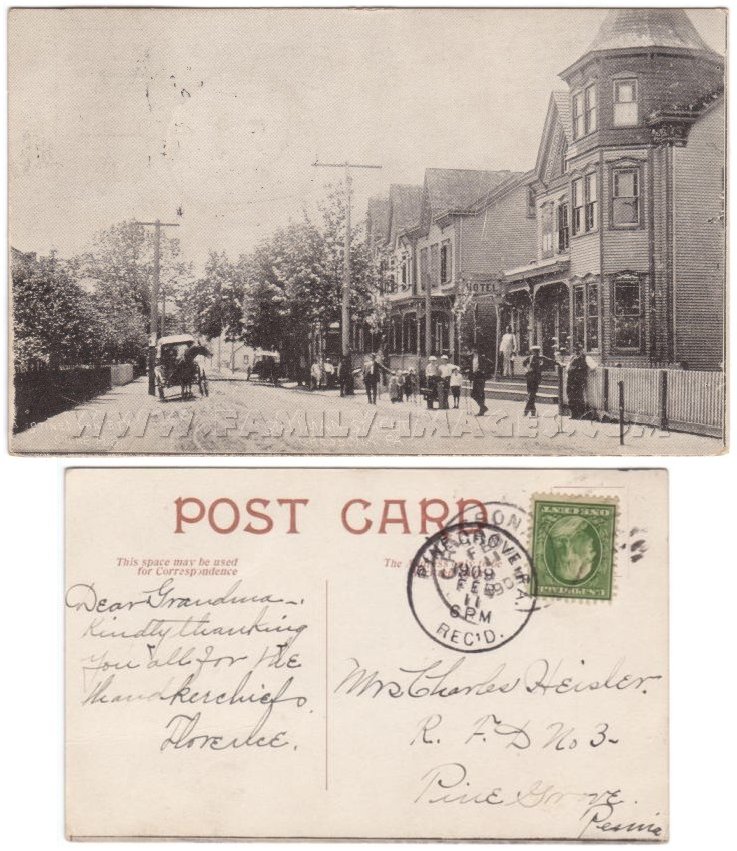 HOTEL
WWW.FAMILY-IMAGES.COM
POST CARD
This space may be used
for Correspondence
The
Dear Grandma—.
Kindly thanking
you all for the
handkerchiefs.
Florence.
PINE GROVE (PA.)
FEB
11
6 PM
1909
REC'D.
SON
ONE CENT
U.S. POSTAGE
Mrs Charles Heisler.
R. F. D No 3-
Pine Grove.
Penna